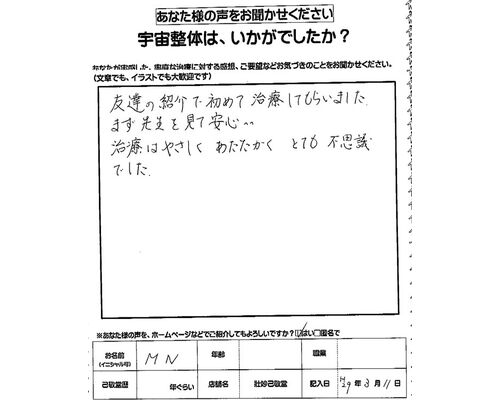 あなた様の声をお聞かせください
宇宙整体は、いかがでしたか？
あなたが実感した、率直な治療に対する感想、ご要望などお気づきのことをお聞かせください。
(文章でも、イラストでも大歓迎です)
友達の紹介で初めて治療してもらいました。
まず先生を見て安心〜
治療はやさしく あたたかく とても 不思議
でした。
※あなた様の声を、ホームページなどでご紹介してもよろしいですか？ はい □匿名で
お名前 (イニシャル可) MN 年齢 職業
己敬堂歴 年ぐらい 店舗名 壮妙己敬堂 記入日 H29年3月11日